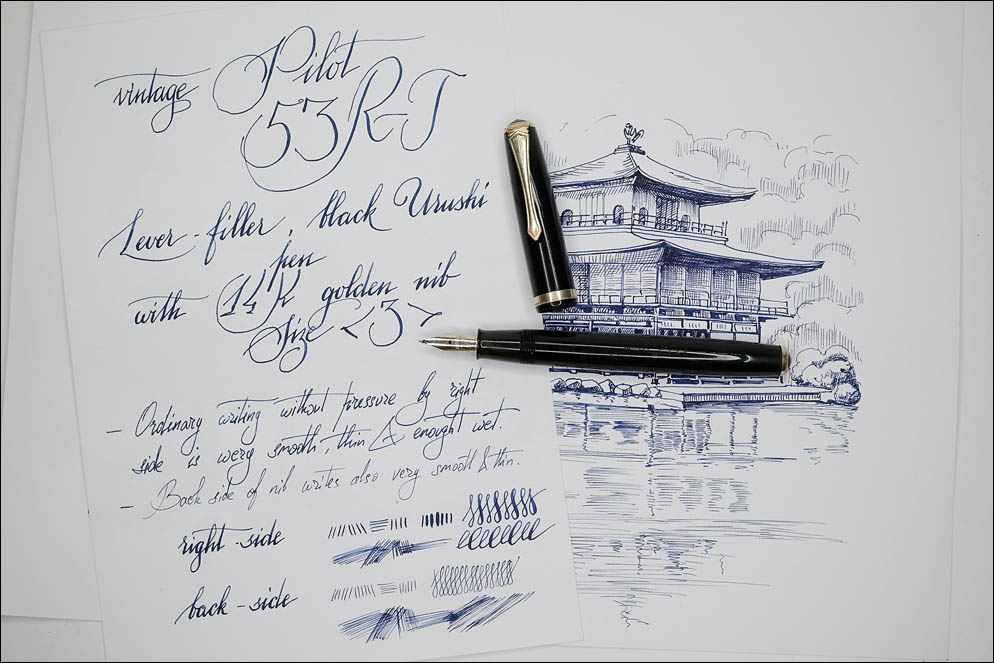 vintage Pilot
53R-T
Lever-filler, black Urushi
pen
with 14K golden nib
Size <3>
- Ordinary writing without pressure by right
side is wery smooth, thin & enought wet.
- Back side of nib writes also very smooth & thin.
right-side
back-side